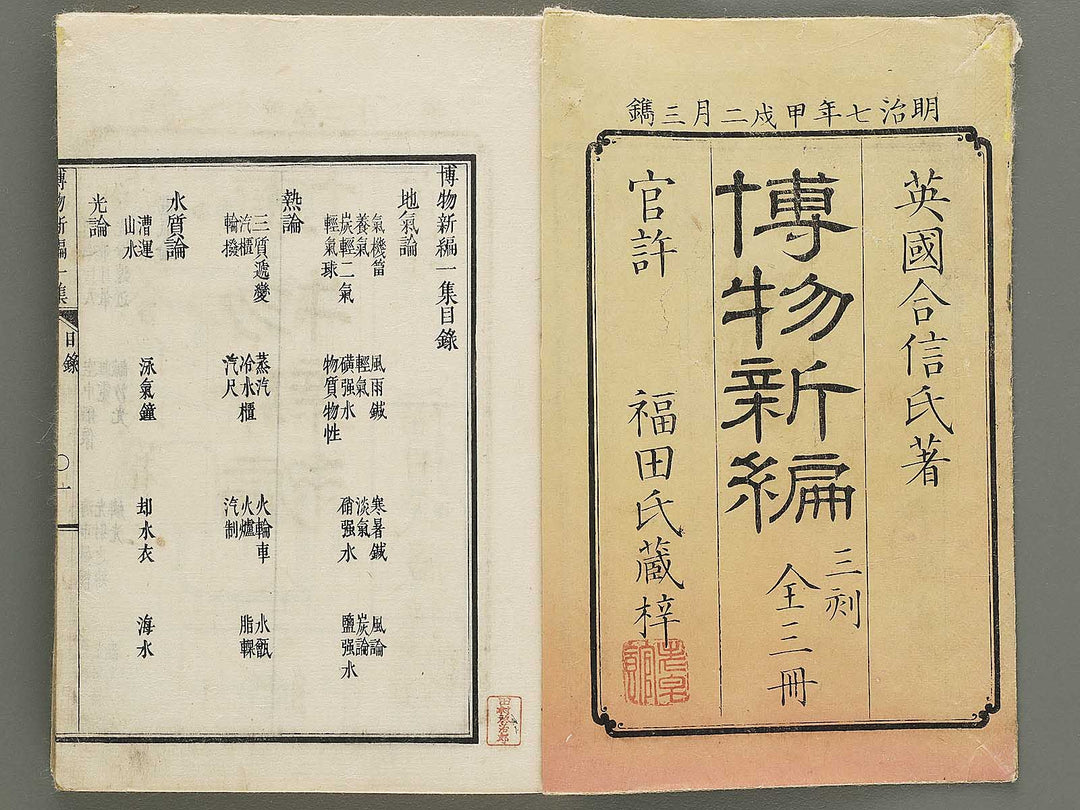 明治七年甲戌二月三鐫
英國合信氏著
博物新編
三刻
全三冊
官許
福田氏藏梓
博物新編一集目錄
地氣論
氣機筩 風雨鍼 寒暑鍼 風論
養氣 輕氣 淡氣 炭論
炭輕二氣 磺强水 硝强水 鹽强水
輕氣球 物質物性
熱論
三質遞變 蒸汽 火輪車 水甑
汽櫃 冷水櫃 火爐 脂輠
輪撥 汽尺 汽制
水質論
漕運 泳氣鐘 却水衣 海水
山水
光論
博物新編一集
目錄
〇一